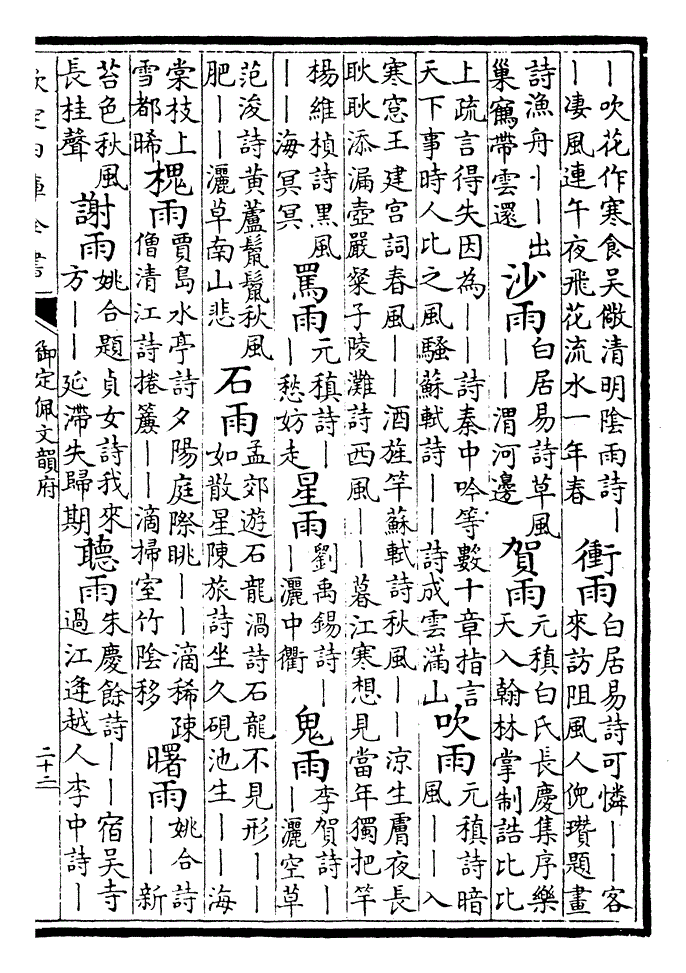 丨吹花作寒食吳儆清明陰雨詩丨
丨凄風連午夜飛花流水一年春
衝雨
白居易詩可憐丨丨客
來訪阻風人倪瓚題畫
詩漁舟丨丨出
巢鶴帶雲還
沙雨
白居易詩草風
丨丨渭河邊
賀雨
元稹白氏長慶集序樂
天入翰林掌制誥比比
上疏言得失因為丨丨詩秦中吟等數十章指言
天下事時人比之風騷蘇軾詩丨丨詩成雲滿山
吹雨
元稹詩暗
風丨丨入
寒窓王建宮詞春風丨丨酒旌竿蘇軾詩秋風丨丨涼生膚夜長
耿耿添漏壺嚴粲子陵灘詩西風丨丨暮江寒想見當年獨把竿
楊維楨詩黑風
丨丨海冥冥
罵雨
元稹詩丨
丨愁妨走
星雨
劉禹錫詩丨
丨灑中衢
鬼雨
李賀詩丨
丨灑空草
范浚詩黃蘆鬣鬣秋風
肥丨丨灑草南山悲
石雨
孟郊遊石龍渦詩石龍不見形丨丨
如散星陳旅詩坐久硯池生丨丨海
棠枝上
雪都晞
槐雨
賈島水亭詩夕陽庭際眺丨丨滴稀疎
僧清江詩捲簾丨丨滴掃室竹陰移
曙雨
姚合詩
丨丨新
苔色秋風
長桂聲
謝雨
姚合題貞女詩我來
方丨丨延滯失歸期
聽雨
朱慶餘詩丨丨宿吳寺
過江逢越人李中詩丨
欽定四庫全書
御定佩文韻府
二十二